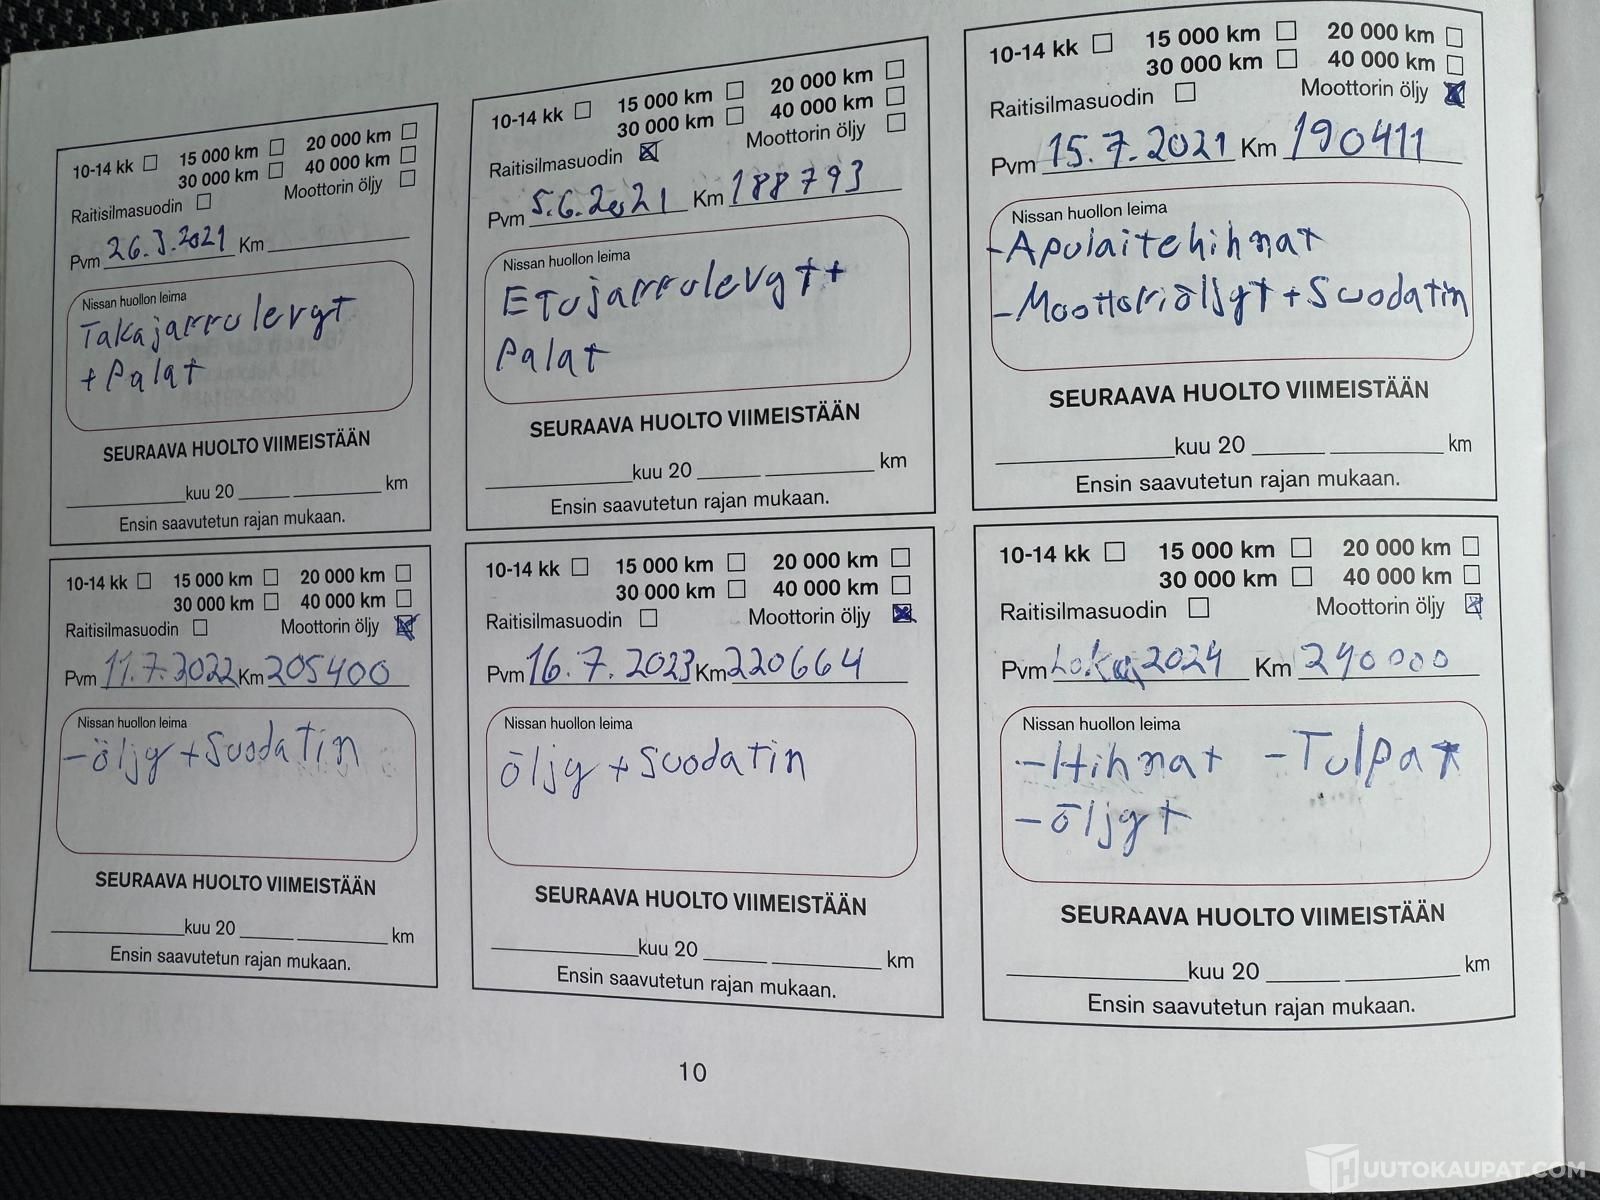 10-14 kk 15 000 km 20 000 km
30 000 km 40 000 km
Raitisilmasuodin Moottorin öljy
Pvm 26.3.2021 Km
Nissan huollon leima
Takajarrulevyt
+ Palat
SEURAAVA HUOLTO VIIMEISTÄÄN
kuu 20 km
Ensin saavutetun rajan mukaan.
10-14 kk 15 000 km 20 000 km
30 000 km 40 000 km
Raitisilmasuodin Moottorin öljy
Pvm 5.6.2021 Km 188793
Nissan huollon leima
Etujarrulevyt+
Palat
SEURAAVA HUOLTO VIIMEISTÄÄN
kuu 20 km
Ensin saavutetun rajan mukaan.
10-14 kk 15 000 km 20 000 km
30 000 km 40 000 km
Raitisilmasuodin Moottorin öljy
Pvm 15.7.2021 Km 190411
Nissan huollon leima
-Apulaitehihnat
-Moottoriöljyt + Suodatin
SEURAAVA HUOLTO VIIMEISTÄÄN
kuu 20 km
Ensin saavutetun rajan mukaan.
10-14 kk 15 000 km 20 000 km
30 000 km 40 000 km
Raitisilmasuodin Moottorin öljy
Pvm 11.7.2022 Km 205400
Nissan huollon leima
-öljy + Suodatin
SEURAAVA HUOLTO VIIMEISTÄÄN
kuu 20 km
Ensin saavutetun rajan mukaan.
10-14 kk 15 000 km 20 000 km
30 000 km 40 000 km
Raitisilmasuodin Moottorin öljy
Pvm 16.7.2023 Km 220664
Nissan huollon leima
öljy + Suodatin
SEURAAVA HUOLTO VIIMEISTÄÄN
kuu 20 km
Ensin saavutetun rajan mukaan.
10-14 kk 15 000 km 20 000 km
30 000 km 40 000 km
Raitisilmasuodin Moottorin öljy
Pvm Loka 2024 Km 240000
Nissan huollon leima
-Hihnat -Tulpat
-öljyt
SEURAAVA HUOLTO VIIMEISTÄÄN
kuu 20 km
Ensin saavutetun rajan mukaan.
10
HUUTOKAUPAT.COM